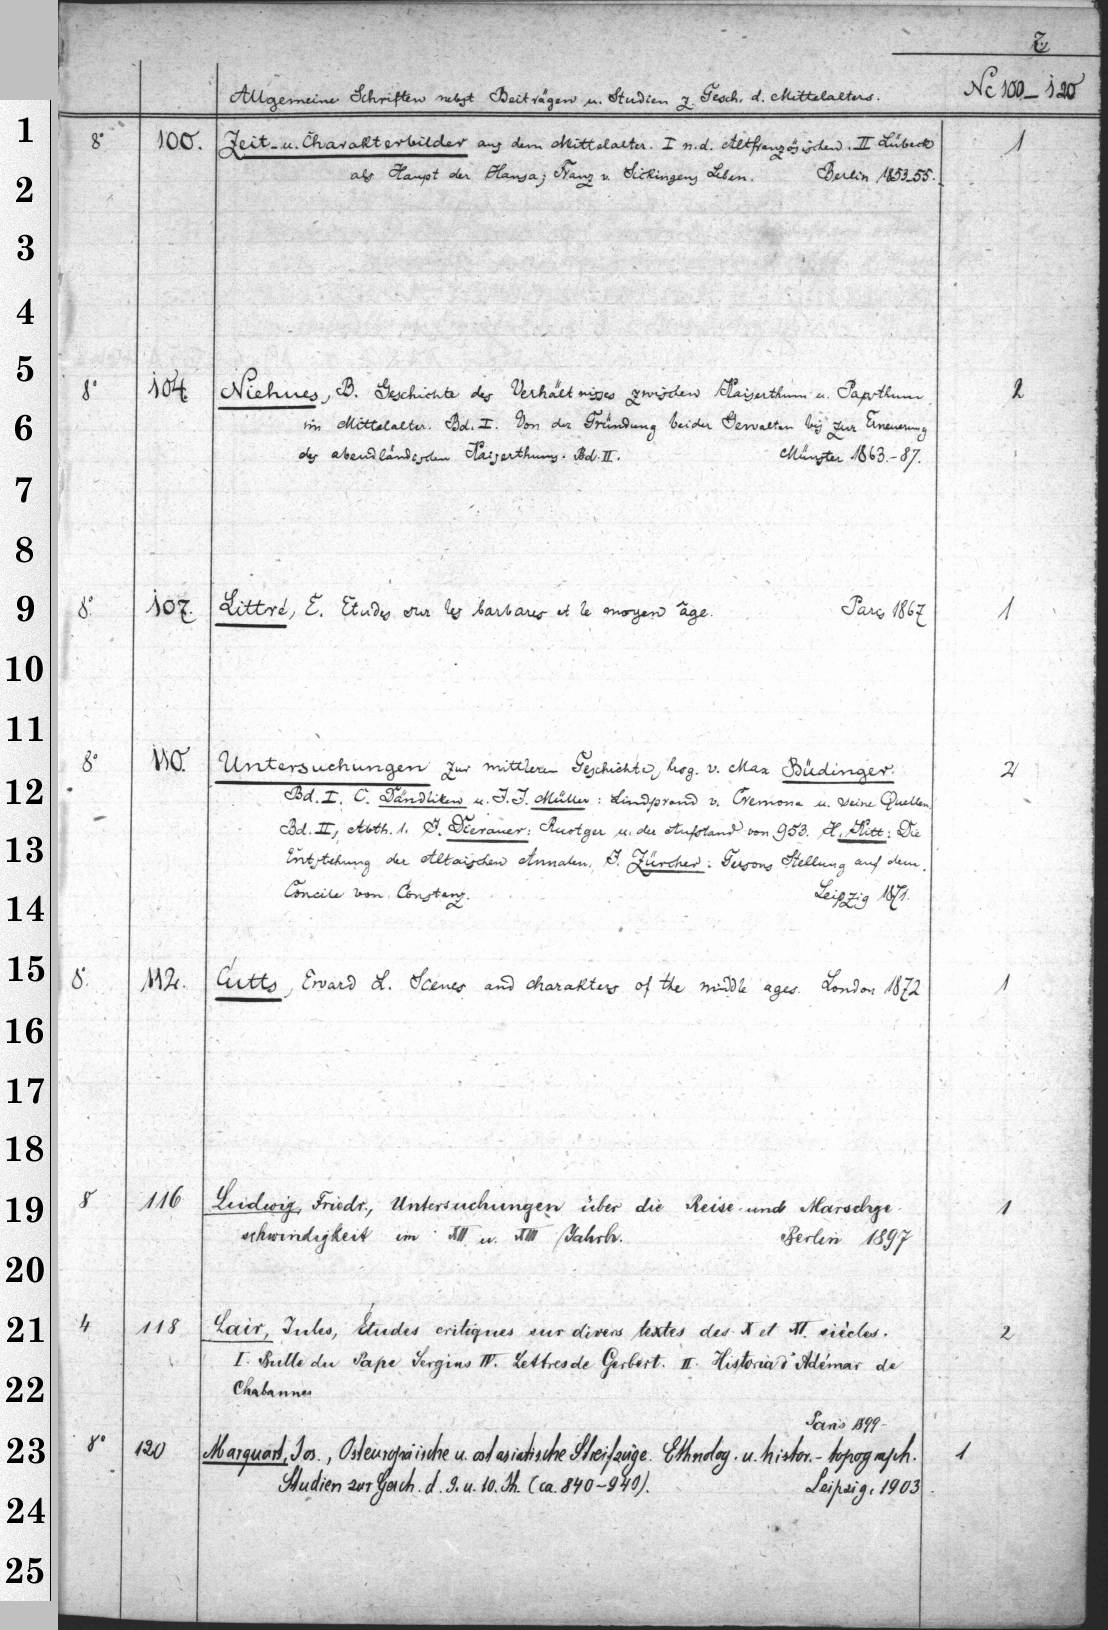 7
Allgemeine Schriften nebst Beiträgen u. Studien z. Gesch. d. Mittelalters. Nc 100_120
1
8° 100. Zeit- u. Charakterbilder aus dem Mittelalter. I n. d. Altfranzösischen. II Lübeck 1
als Haupt der Hansa; Franz v. Sickingens Leben. Berlin 1853_55.
2
3
4
5
8° 104. Niehues, B. Geschichte des Verhältnisses zwischen Kaiserthum u. Papstthum 2
im Mittelalter. Bd. I. Von der Gründung beider Gewalten bis zur Erneuerung
6
des abendländischen Kaiserthums. Bd. II. Münster 1863.-87.
7
8
9
8° 107. Littré, E. Etudes sur les barbares et le moyen âge. Paris 1867 1
10
11
8° 110. Untersuchungen zur mittleren Geschichte, hrsg. v. Max Büdinger. 2
12
Bd. I. C. Dändliker u. J. J. Müller: Liudprand v. Cremona u. seine Quellen.
Bd. II, Abth. 1. J. Dierauer: Ruotger u. der Aufstand von 953. H. Hitt: Die
13
Entstehung der Altaischen Annalen. J. Zürcher: Gersons Stellung auf dem
Concile von Constanz. Leipzig 1871.
14
15
8° 112. Cutts, Erward L. Scenes and charakters of the middle ages. London 1872 1
16
17
18
19
8° 116 Ludwig, Friedr., Untersuchungen über die Reise- und Marschge- 1
schwindigkeit im XII u. XIII Jahrh. Berlin 1897
20
21
4 118 Lair, Jules, Études critiques sur divers textes des X et XI siècles. 2
I. Bulle du Pape Sergius IV. Lettres de Gerbert. II. Historia d'Adémar de
22
Chabannes
Paris 1899-
23
8° 120 Marquart, Jos., Osteuropäische u. ostasiatische Streifzüge. Ethnolog. u. histor.- topograph. 1
Studien zur Gesch. d. 9. u. 10. Jh. (ca. 840-940). Leipzig, 1903.
24
25